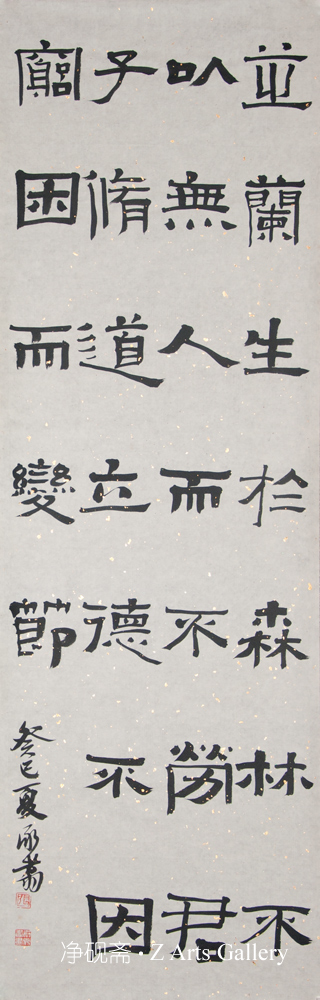 芷蘭生於森林不
以無人而不芳君
子脩道立德不因
窮困而變節
癸巳夏
净砚斋·Z Arts Gallery